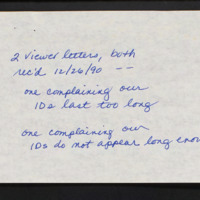 2 viewer letters, both
rec'd 12/26/90 --
one complaining our
IDs last too long
one complaining our
IDs do not appear long enou